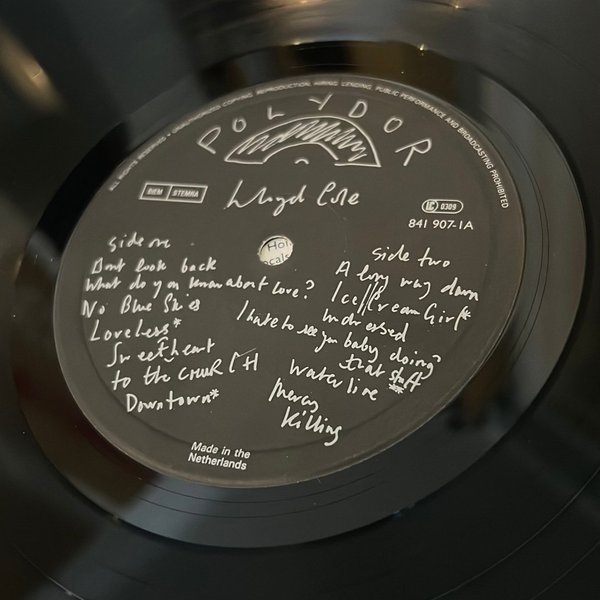 ALL RIGHTS RESERVED • UNAUTHORISED COPYING, REPRODUCTION, HIRING, LENDING, PUBLIC PERFORMANCE AND BROADCASTING PROHIBITED
POLYDOR
BIEM STEMRA
Lloyd Cole
LC 0309
841 907-1A
side one
Dont look back
What do you know about love?
No Blue Skies
Loveless*
Sweetheart
to the CHURCH
Downtown*
side two
A long way down
Ice Cream Girl*
undressed
I hate to see you baby doing
that stuff
waterline
Mercy
Killing
Hol
ocals
Made in the
Netherlands